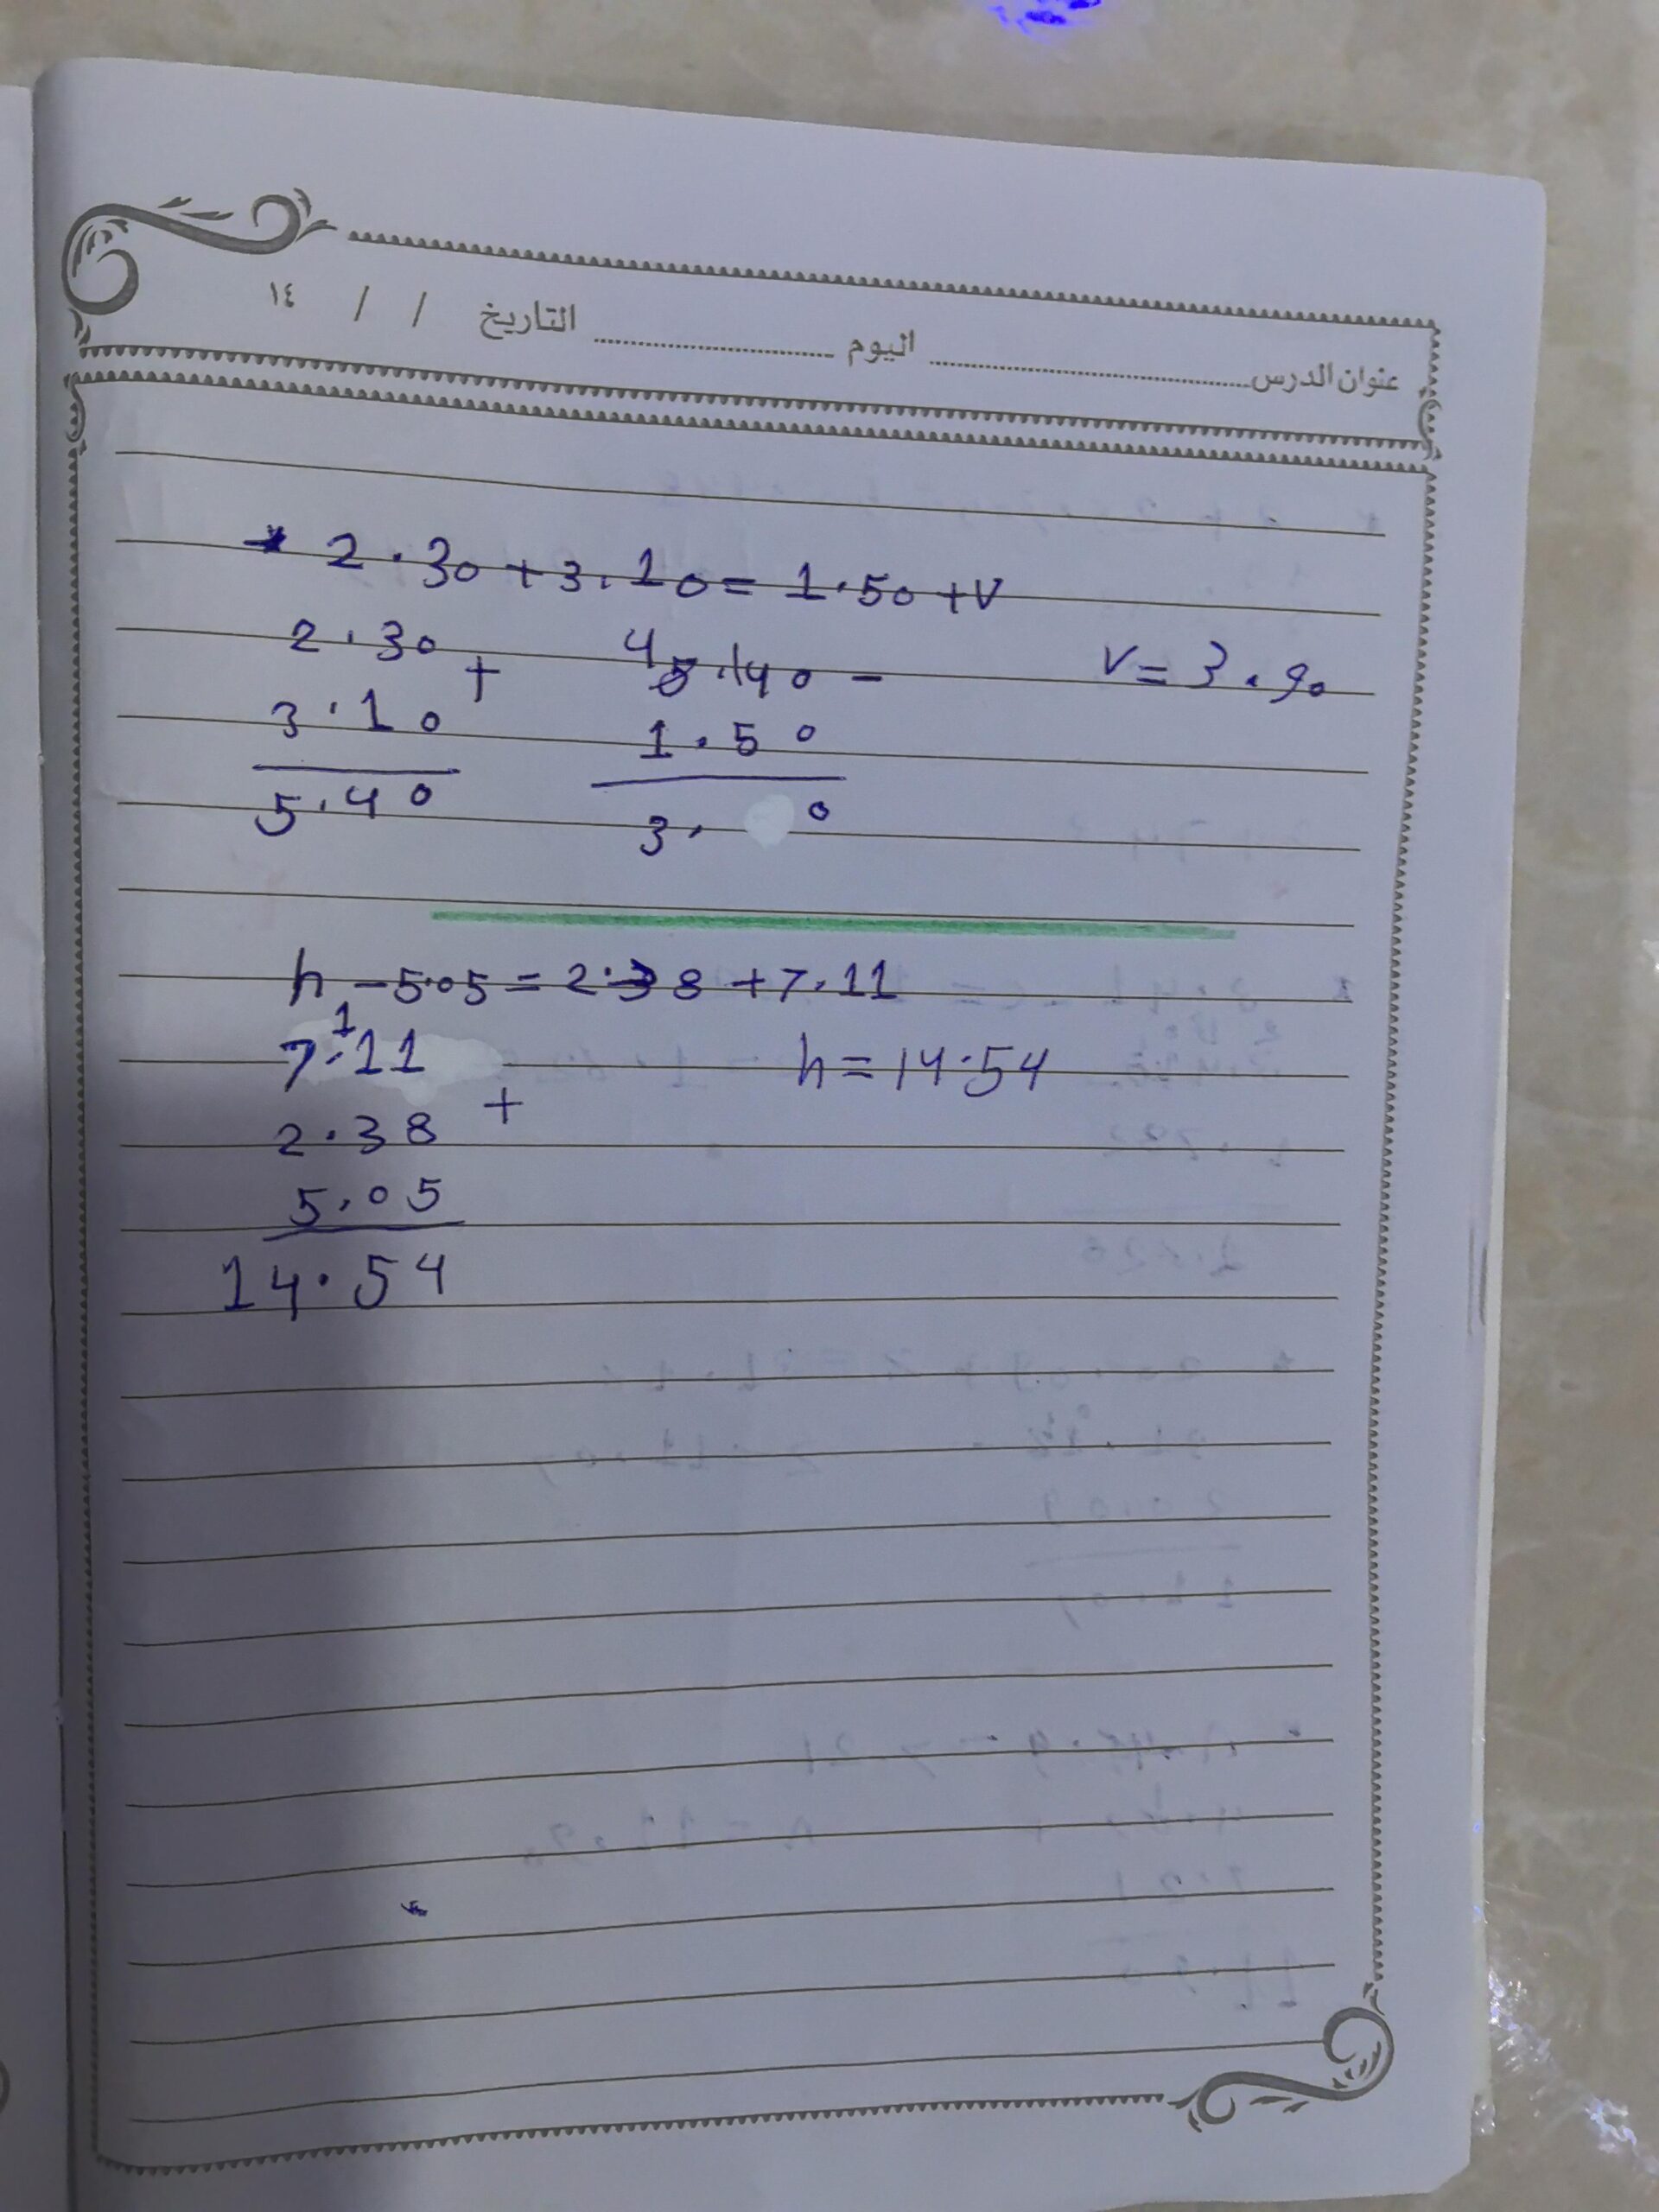 عنوان الدرس اليوم التاريخ / / ١٤
* 2.30 + 3.10 = 1.50 + V
2.30 + 4 5.140 - V = 3.90
3.10 1.50
5.40 3. 0
h - 5.05 = 2.38 + 7.11
1
7.11 h = 14.54
2.38 +
5.05
14.54